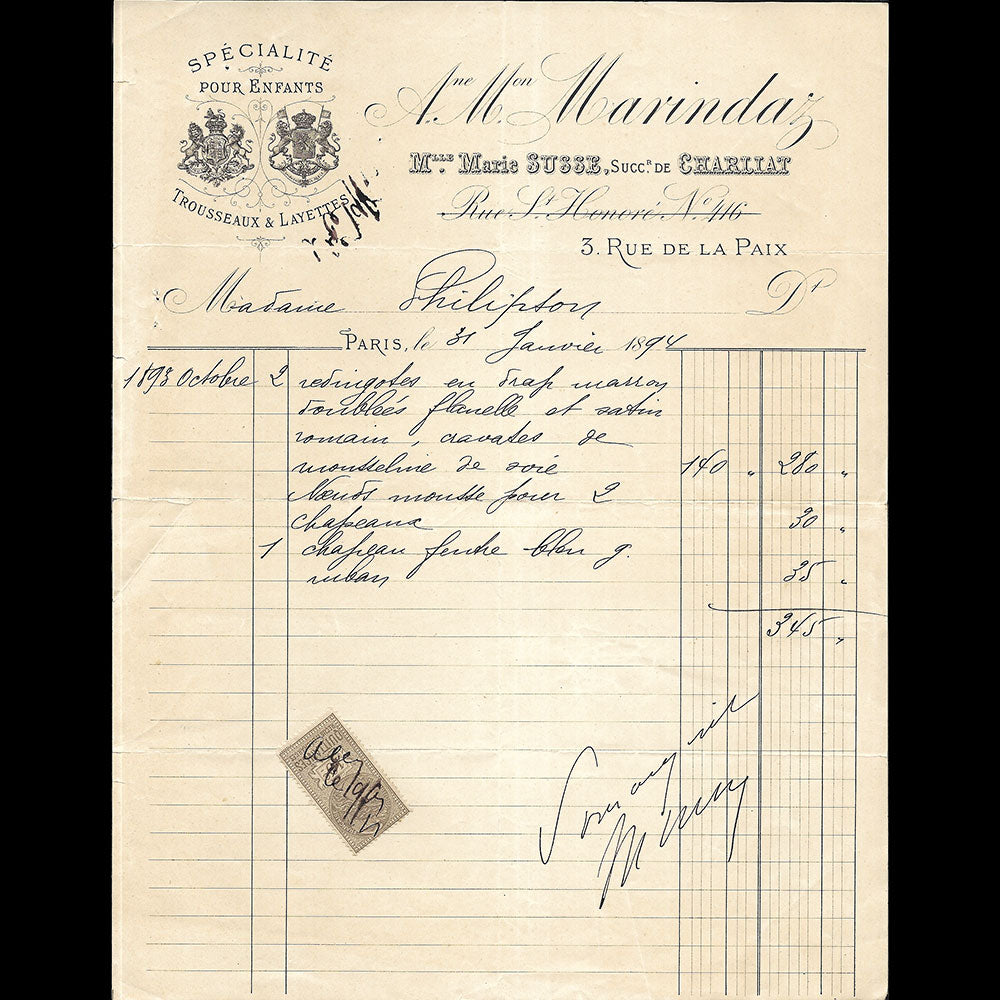 SPÉCIALITÉ
POUR ENFANTS
TROUSSEAUX & LAYETTES
Ane. Mon. Marindaz
MLLE Marie SUSSE, SUCCR. DE CHARLIAT
Rue St. Honoré No. 416
3. RUE DE LA PAIX
Madame Philipson Dt
PARIS, le 31 Janvier 1894
1893 Octobre 2 redingotes en drap marron
doublées flanelle et satin
romain, cravates de
mousseline de soie 140 " 280 "
Nœuds mousse pour 2
chapeaux 30 "
1 chapeau feutre bleu g.
ruban 35 "
345 "